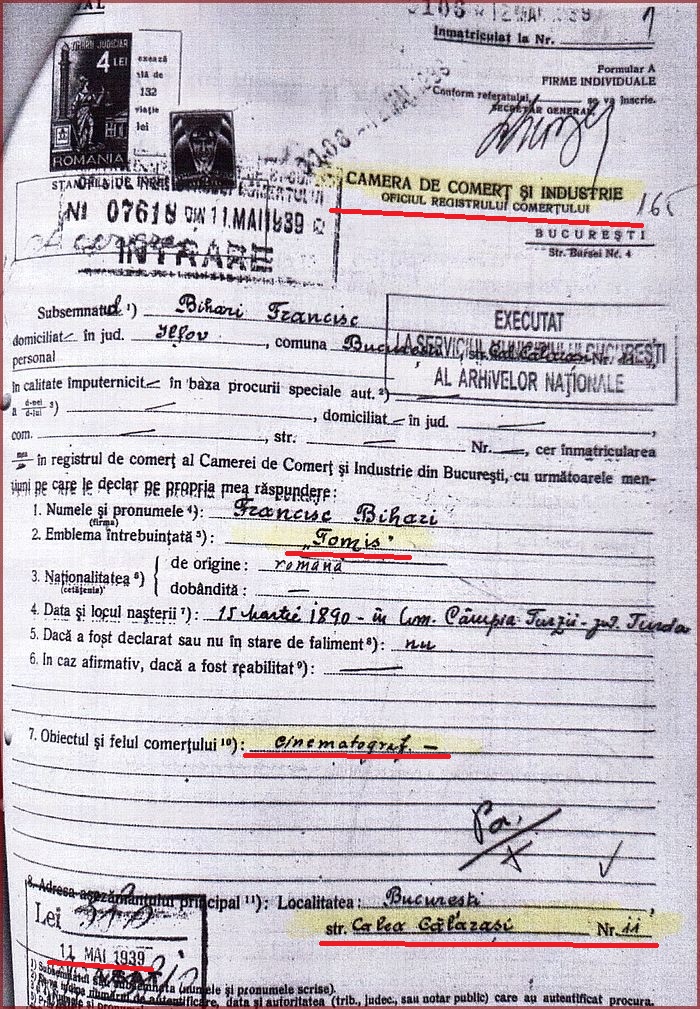 3108 * 12 MAI. 939
Inmatriculat la Nr. 1
Formular A
FIRME INDIVIDUALE
Conform referatului, se va înscrie.
SECRETAR GENERAL
TIMBRU JUDICIAR
4 LEI
ROMANIA
132
lei
CAMERA DE COMERȚ ȘI INDUSTRIE
OFICIUL REGISTRULUI COMERȚULUI
165
BUCUREȘTI
Str. Bursei Nr. 4
N! 07618 DIN 11. MAI 1939
INTRARE
EXECUTAT
LA SERVICIUL MUNICIPIULUI BUCUREȘTI
AL ARHIVELOR NAȚIONALE
Subsemnatul ¹) Bihari Francisc
domiciliat în jud. Ilfov, comuna București, str. Cal. Călărași Nr. 11
personal
în calitate împuternicit în baza procurii speciale aut. ²)
a d-nei d-lui ³) , domiciliat în jud. ,
com. , str. Nr. , cer înmatricularea
mea în registrul de comerț al Camerei de Comerț și Industrie din București, cu următoarele men-
țiuni pe care le declar pe propria mea răspundere:
1. Numele și pronumele ⁴): Francisc Bihari
(firma)
2. Emblema întrebuințată ⁵): „Tomis"
3. Naționalitatea ⁶) { de origine: română
(cetățenia) dobândită: —
4. Data și locul nașterii ⁷): 15 Martie 1890 - în Com. Câmpia Turzii - jud. Turda
5. Dacă a fost declarat sau nu în stare de faliment ⁸): nu
6. In caz afirmativ, dacă a fost reabilitat ⁹): —
7. Obiectul și felul comerțului ¹⁰): cinematograf. —
8. Adresa așezământului principal ¹¹): Localitatea: București,
str. Calea Călărași Nr. 11
Lei
11 MAI 1939
1) Subsemnatul sau subsemnata (numele și pronumele scrise).
numărul de autentificare, data și autoritatea (trib., judec., sau notar public) care au autentificat procura.